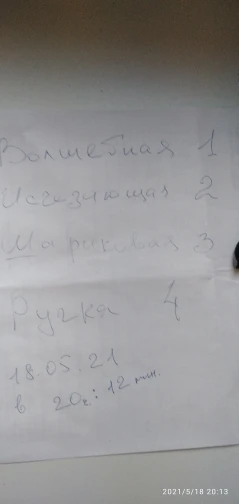 Волшебная 1
Исчезающая 2
Шариковая 3
Ручка 4
18.05.21
в 20ч: 12 мин.
2021/5/18 20:13